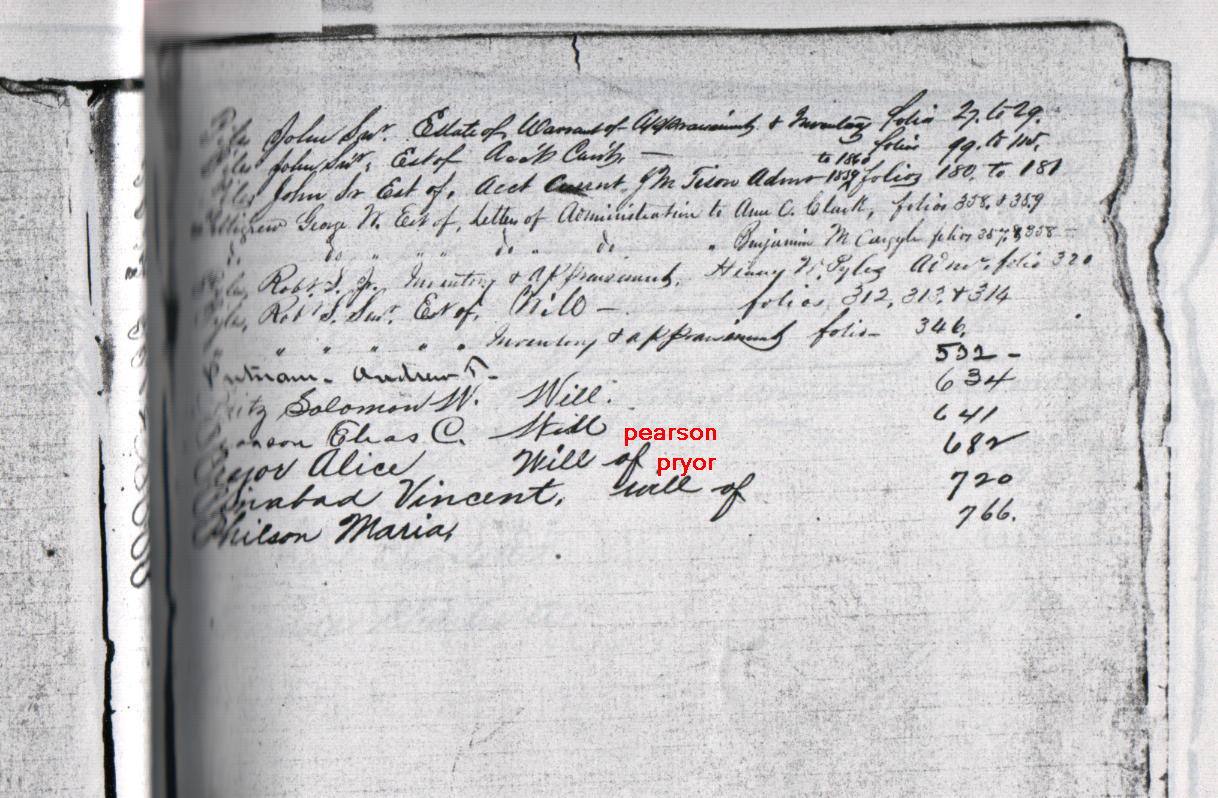 John Senr. Estate of, Warrant of Appraisement & Inventory folio 27. to 29.
John Senr. Est of Acct Curt. — folios 99. to 115.
to 1860
John Sr Est of, Acct Current, J M Tison Admr 1859 folios 180. to 181
George W. Est of, Letters of Administration to Ann C. Clark, folios 358. & 359
do " " " do " do " Benjamin M Cargyle folios 357, & 358 —
Robt. S. Jr. Inventory & Appraisement, Henry W. Pyles Admr. folio 320
Pyles, Robt S. Senr. Est of, Will — folios, 312, 313, & 314
" " " " " Inventory & appraisement folio — 346.
Putnam — Andrew T — 532 —
Solomon W. Will. 634
Pearson Elias C. Will pearson 641
Pryor Alice Will of pryor 682
Vincent, will of 720
Philson Maria, 766.